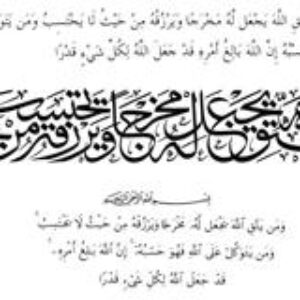 ـقِ اللَّهَ يَجْعَل لَّهُ مَخْرَجًا وَيَرْزُقْهُ مِنْ حَيْثُ لَا يَحْتَسِبُ وَمَن يَتَوَ
ـسْبُهُ إِنَّ اللَّهَ بَالِغُ أَمْرِهِ قَدْ جَعَلَ اللَّهُ لِكُلِّ شَيْءٍ قَدْرًا
ـتق يجعل له مخرجا ويرزقه من يحتسب
بسم الله الرحمن الرحيم
وَمَن يَتَّقِ اللَّهَ يَجْعَل لَّهُ مَخْرَجًا وَيَرْزُقْهُ مِنْ حَيْثُ لَا يَحْتَسِبُ
وَمَن يَتَوَكَّلْ عَلَى اللَّهِ فَهُوَ حَسْبُهُ إِنَّ اللَّهَ بَالِغُ أَمْرِهِ
قَدْ جَعَلَ اللَّهُ لِكُلِّ شَيْءٍ قَدْرًا